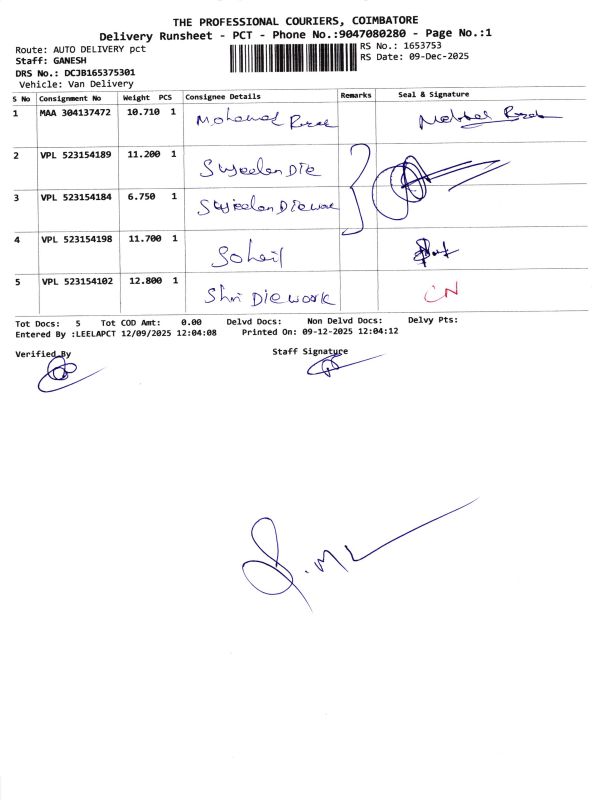 THE PROFESSIONAL COURIERS, COIMBATORE
Delivery Runsheet - PCT - Phone No.:9047080280 - Page No.:1
Route: AUTO DELIVERY pct RS No.: 1653753
Staff: GANESH RS Date: 09-Dec-2025
DRS No.: DCJB165375301
Vehicle: Van Delivery
S No Consignment No Weight PCS Consignee Details Remarks Seal & Signature
1 MAA 304137472 10.710 1 Mohamad
2 VPL 523154189 11.200 1 Sujeelan Die
3 VPL 523154184 6.750 1 Sujeelan Diework
4 VPL 523154198 11.700 1 Soheil
5 VPL 523154102 12.800 1 Shri Diework
Tot Docs: 5 Tot COD Amt: 0.00 Delvd Docs: Non Delvd Docs: Delvy Pts:
Entered By :LEELAPCT 12/09/2025 12:04:08 Printed On: 09-12-2025 12:04:12
Verified By Staff Signature